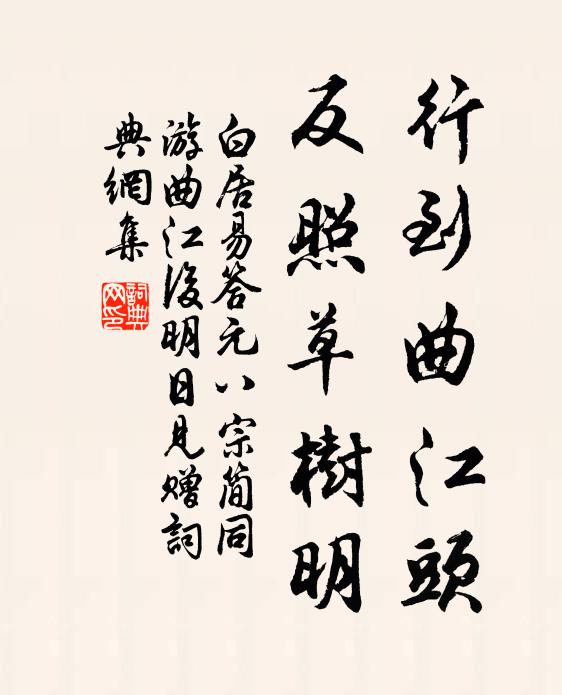 行到曲江頭
反照草樹明
白居易答元八宗簡同
游曲江後明日見贈詞
典網集
詞典网印